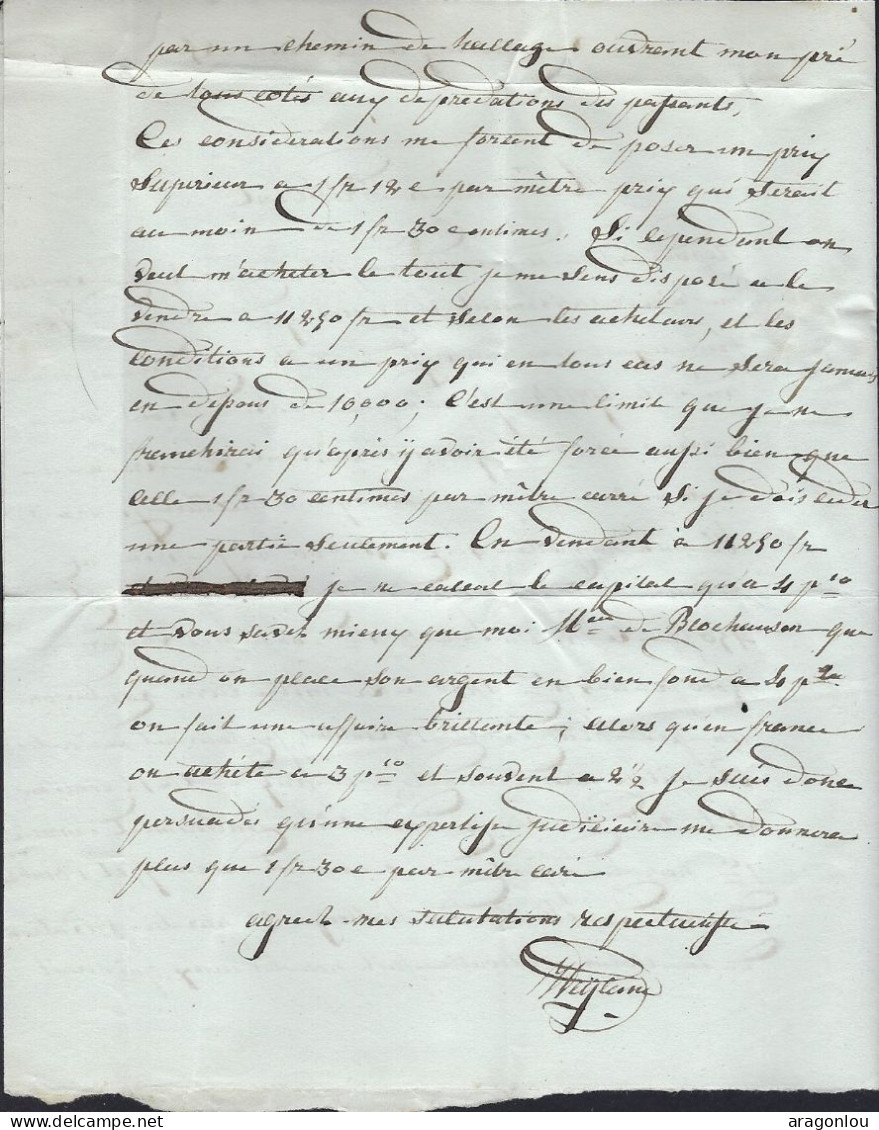 par un chemin de hallage ouvrant mon pré
de tous cotés aux depredations des passants,
Ces considerations me forcent de poser un prix
superieur a 1 fr 12 c par mêtre prix qui serait
au moin de 1 fr 30 centimes. Si cependant on
veut m'acheter le tout je me sens disposé a le
vendre a 11250 fr et selon les acheteurs, et les
conditions a un prix qui en tous cas ne sera jamais
en depous de 10,000; c'est une limite que je ne
franchirai qu'après y avoir été forcé aussi bien que
celle 1 fr 30 centimes par mêtre carré si je dois ceder
une partie seulement. En vendant à 11250 fr
je ne calcul le capital qu'a 4 p%
et vous savez mieux que moi de Blochausen que
quand on place son argent en bien fond a 4 p%
on fait une affaire brillante; alors qu'en france
on achéte a 3 p% et souvent a 2½ je suis donc
persuadés qu'une expertise judiciaire me donnera
plus que 1 fr 30 c par mêtre caré
agreez mes salutations respectueuse
delcampe.net
aragonlou